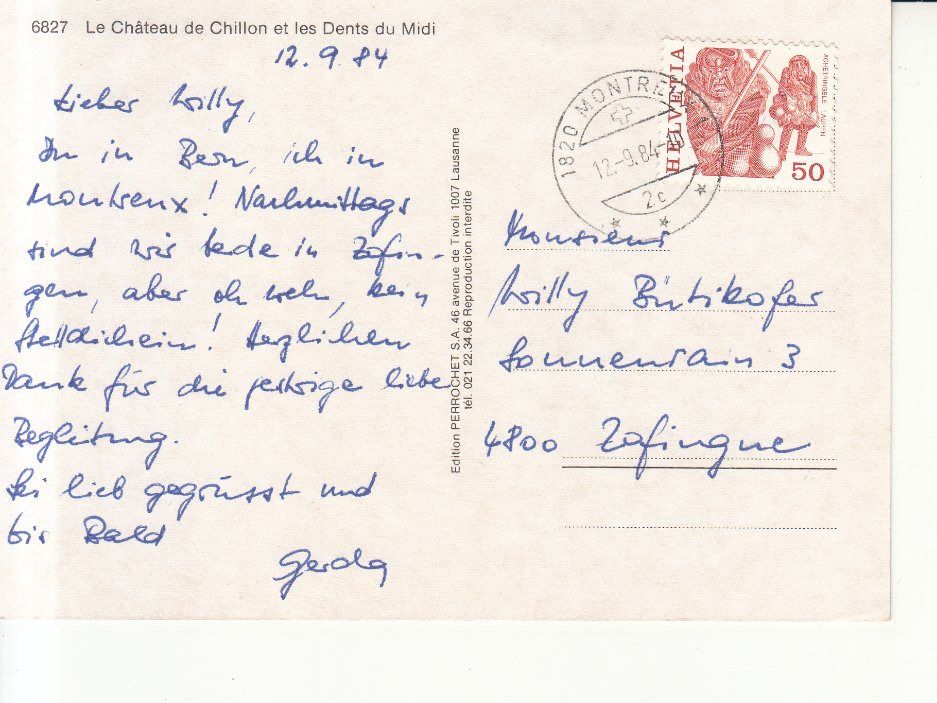 6827 Le Château de Chillon et les Dents du Midi
12.9.84
Lieber Willy,
Du in Bern, ich in
Montreux! Nachmittags
sind wir beide in Zofin-
gen, aber oh weh, kein
Stelldichein! Herzlichen
Dank für die gestrige liebe
Begleitung.
Sei lieb gegrüsst und
bis Bald
Gerda
Edition PERROCHET S.A. 46 avenue de Tivoli 1007 Lausanne
tél. 021 22.34.66 Reproduction interdite
1820 MONTREUX 1
12.-9.84-10
2c
HELVETIA
50
Monsieur
Willy Bütikofer
Sonnenrain 3
4800 Zofingue